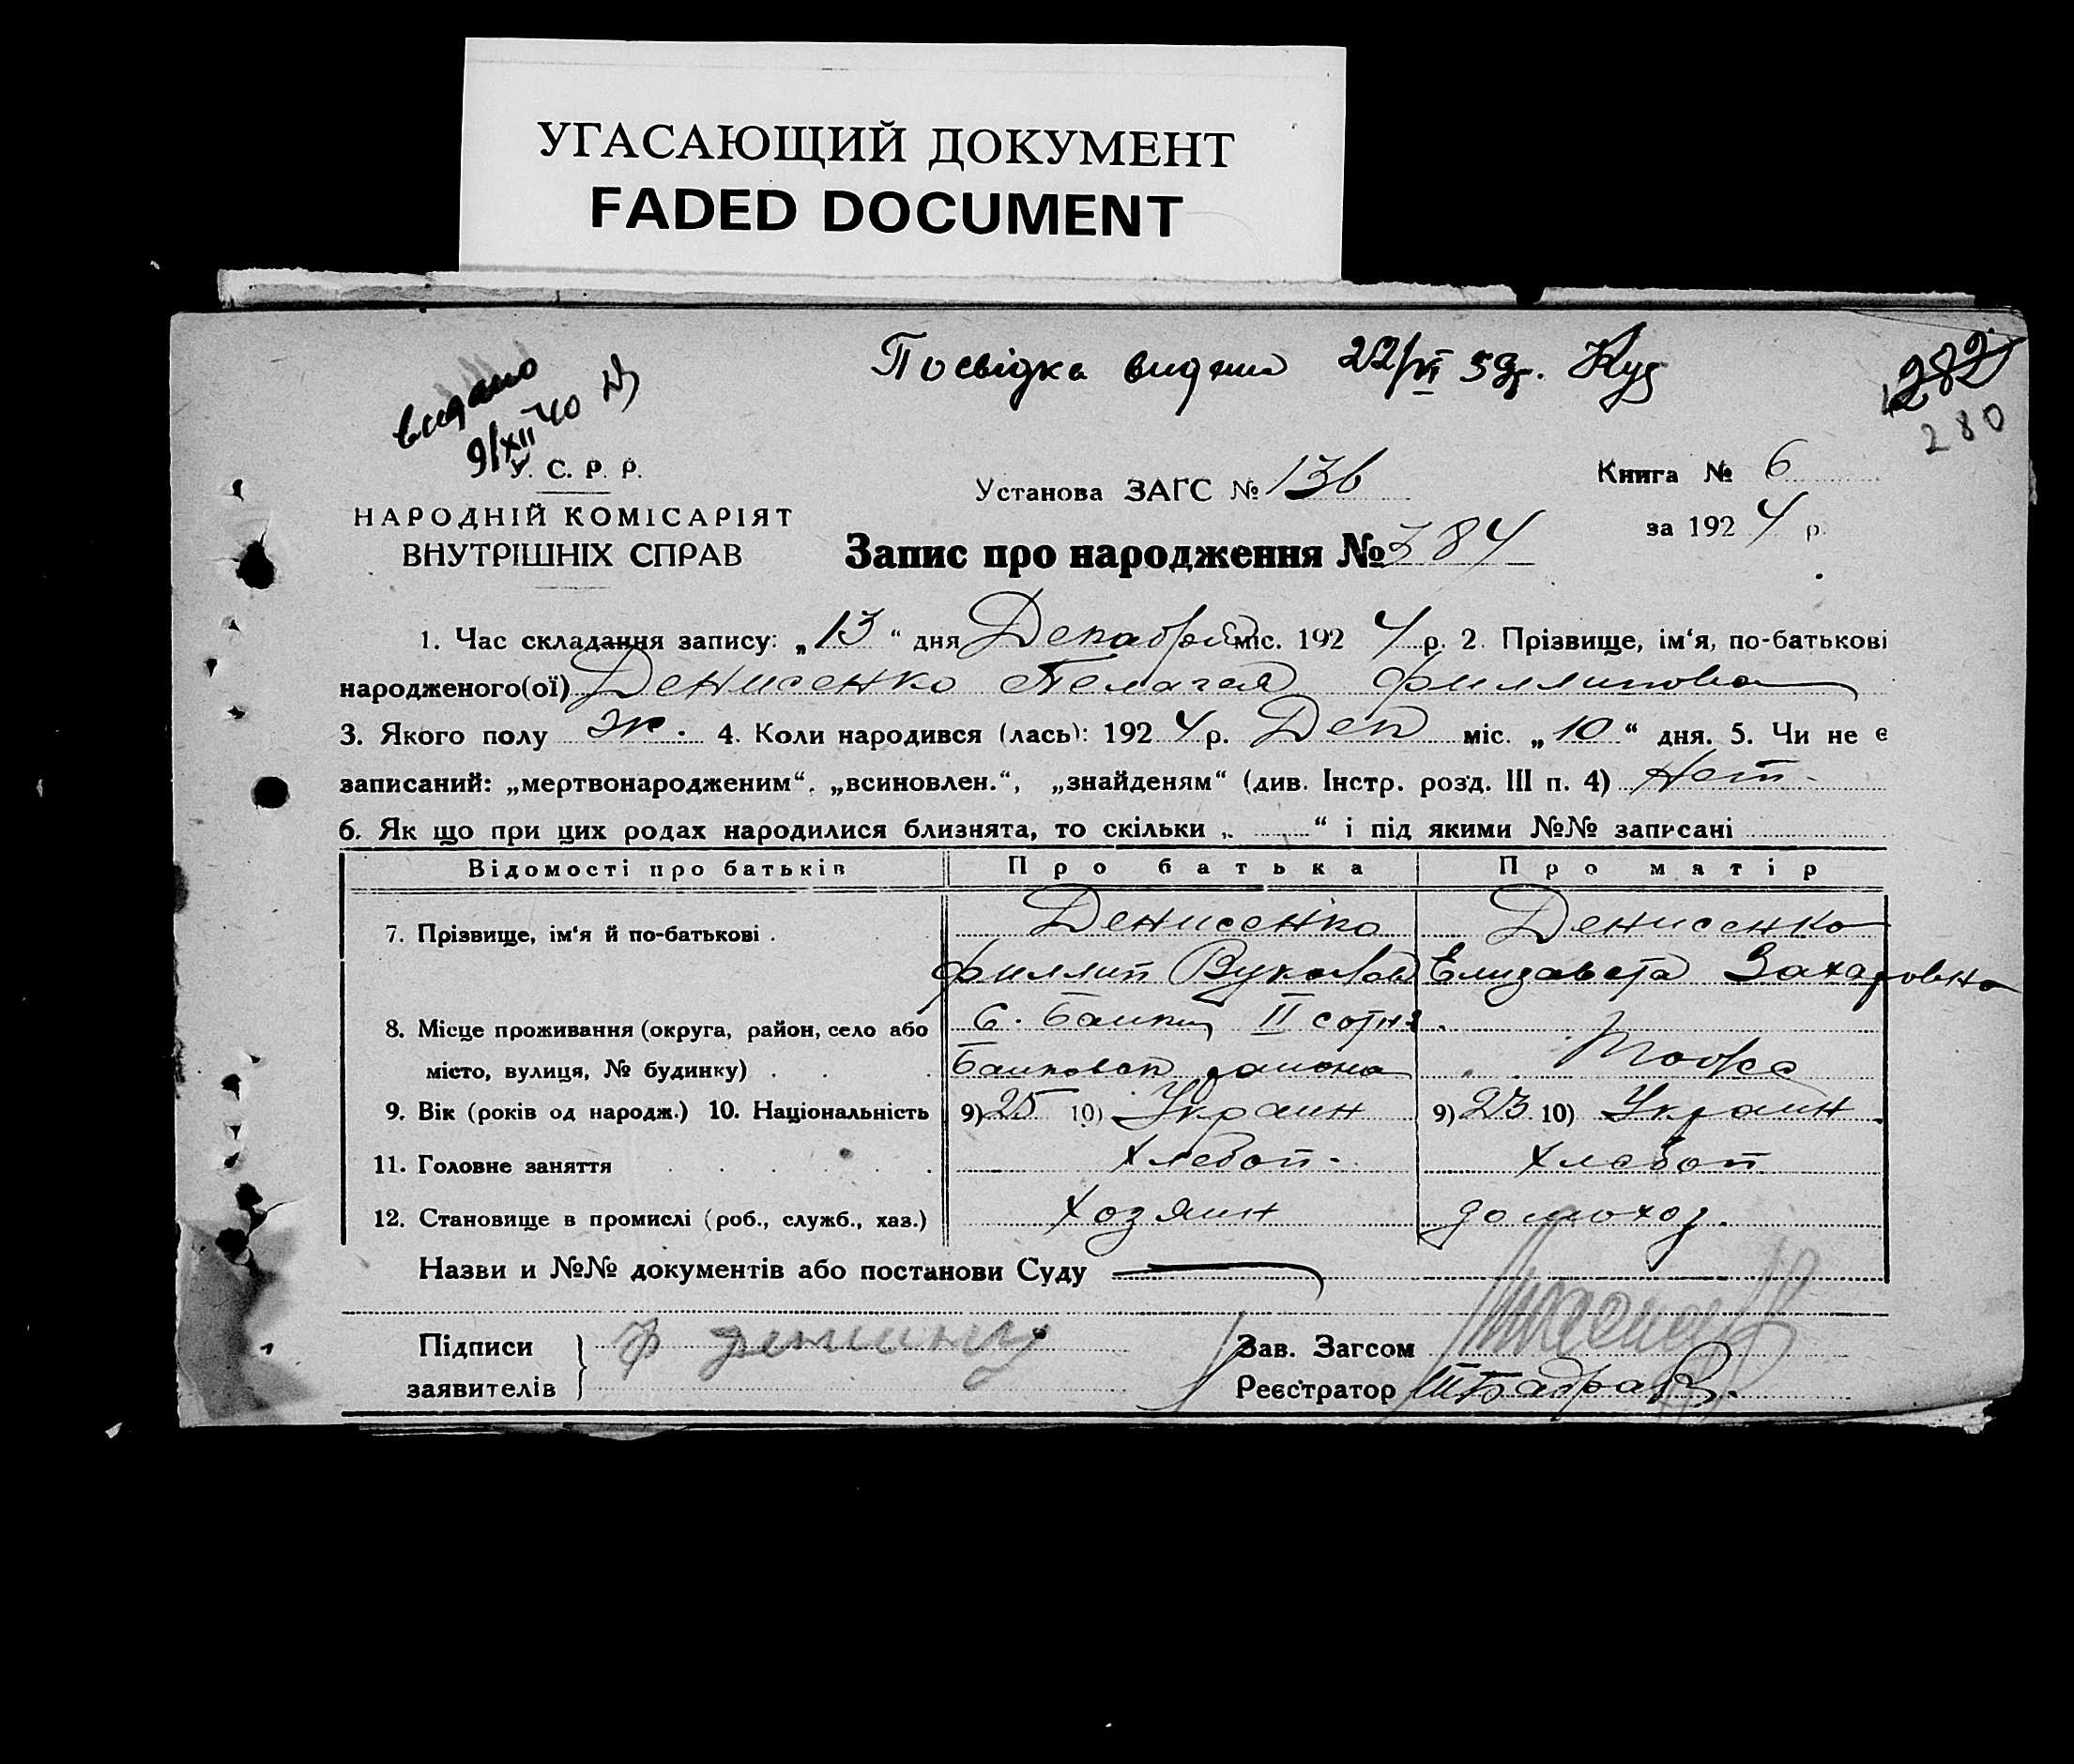 УГАСАЮЩИЙ ДОКУМЕНТ
FADED DOCUMENT
Посвідка видана 22/VI 39р.
282
280
видано
9/XII 40
У. С. Р. Р.
НАРОДНІЙ КОМІСАРІЯТ
ВНУТРІШНІХ СПРАВ
Установа ЗАГС № 136
Книга № 6
за 1924 р.
Запис про народження № 384
1. Час складання запису: „13“ дня Декабря міс. 1924 р. 2. Прізвище, ім‘я, по-батькові
народженого(ої) Денисенко Пелагея Филлипова
3. Якого полу ж. 4. Коли народився (лась): 1924 р. Дек міс. „10“ дня. 5. Чи не є
записаний: „мертвонародженим“, „всиновлен.“, „знайденям“ (див. Інстр. розд. III п. 4) Нет
6. Як що при цих родах народилися близнята, то скільки „ “ і під якими №№ записані
Відомості про батьків Про батька Про матір
7. Прізвище, ім‘я й по-батькові . Денисенко Денисенко
Филлип Елизавета Захаровна
8. Місце проживання (округа, район, село або С. II сотня
місто, вулиця, № будинку) . . . района
9. Вік (років од народж.) 10. Національність 9) 25 10) Украин 9) 23 10) Украин
11. Головне заняття Хлебоп. Хлебоп
12. Становище в промислі (роб., служб., хаз.) Хозяин домохоз.
Назви и №№ документів або постанови Суду
Підписи
заявителів
Зав. Загсом
Реєстратор